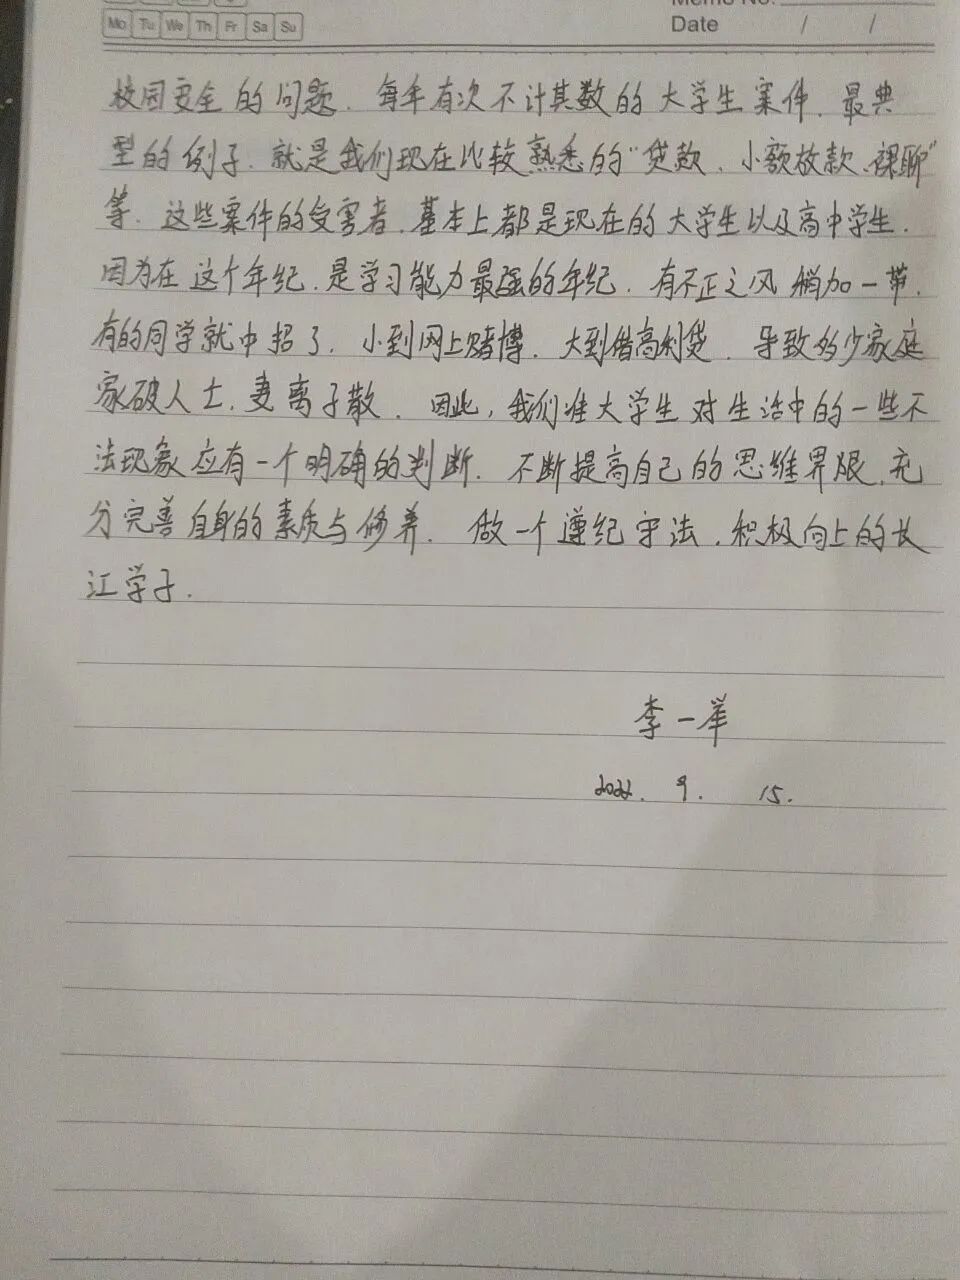 Memo No.
Mo Tu We Th Fr Sa Su
Date / /
校园安全的问题.每年有次不计其数的大学生案件.最典
型的例子.就是我们现在比较熟悉的"贷款.小额放款.裸聊"
等.这些案件的受害者.基本上都是现在的大学生以及高中学生.
因为在这个年纪.是学习能力最强的年纪.有不正之风稍加一带.
有的同学就中招了.小到网上赌博.大到借高利贷.导致多少家庭
家破人亡.妻离子散.因此,我们准大学生对生活中的一些不
法现象应有一个明确的判断.不断提高自己的思维界限.充
分完善自身的素质与修养.做一个遵纪守法.积极向上的长
江学子.
李一举
2022.9.15.